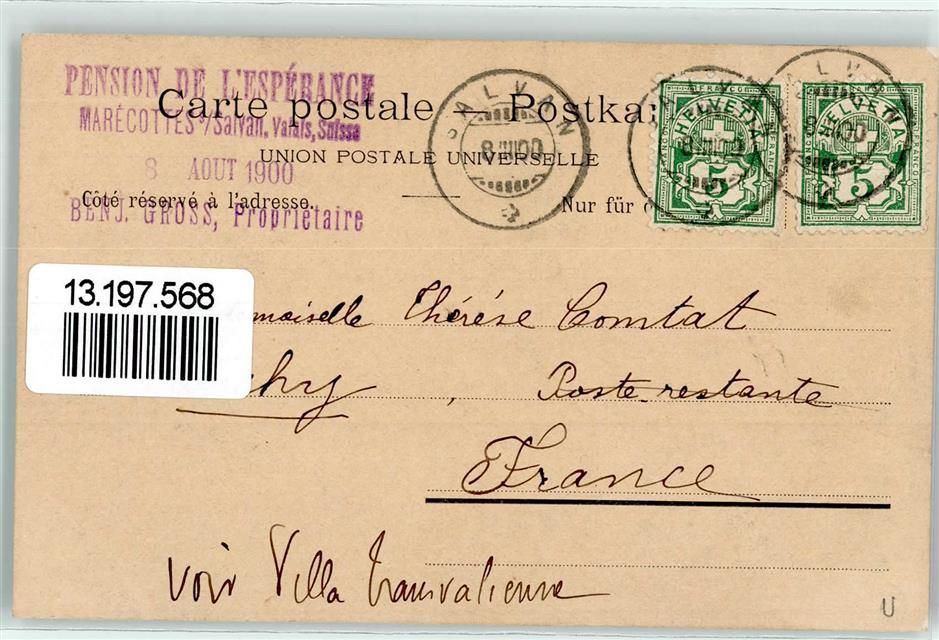 PENSION DE L'ESPÉRANCE
MARÉCOTTES s/Salvan, Valais, Suisse
8 AOUT 1900
BENJ. GROSS, Propriétaire
Carte postale Postka
UNION POSTALE UNIVERSELLE
Côté réservé à l'adresse. Nur für d
SALVAN
8 VIII 00
SALVAN
8 VIII 00
SALVAN
8 VIII 00
FRANCO
HELVETIA
5
FRANCO
HELVETIA
5
13.197.568
emoiselle Thérèse Comtat
chy, Poste-restante
France
voir Villa Transvalienne
U